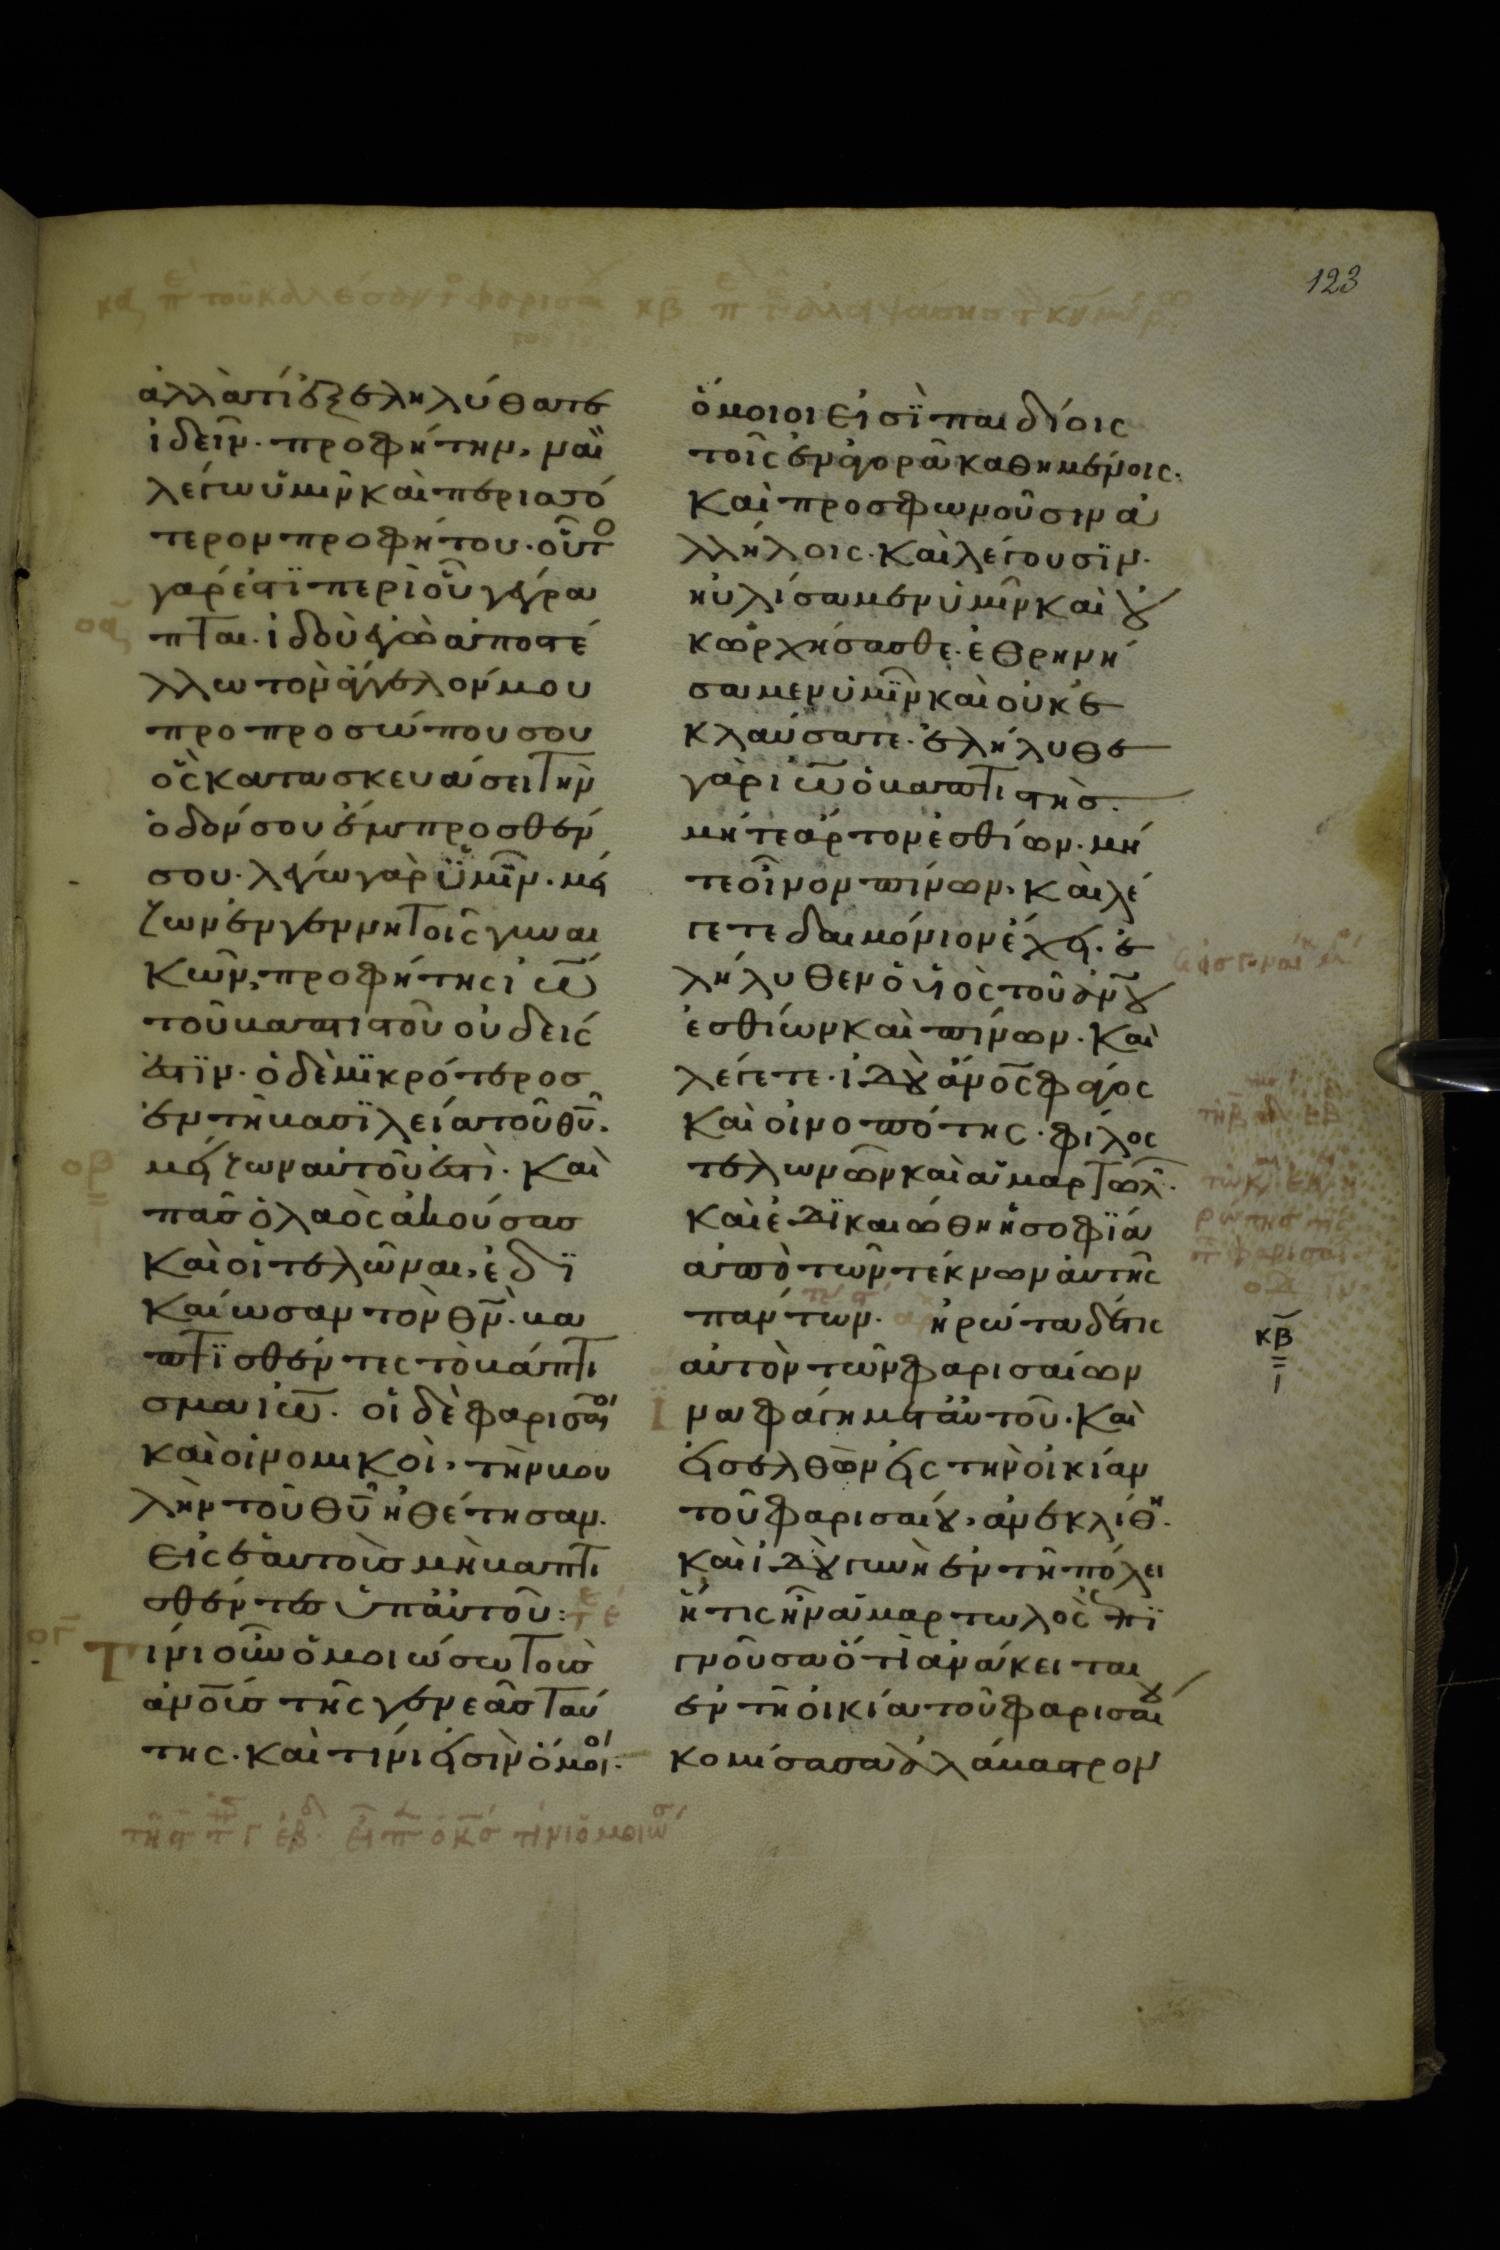 123
κα π του καλέσαντ φαρισαι
κβ
ἀλλὰ τί ἐξεληλύθατε
ἰδεῖν· προφήτην, ναὶ
λέγω ὑμῖν καὶ περισσό
τερον προφήτου· οὗτο
γάρ ἐστϊ περὶ οὗ γέγρα
πται· ἰδοὺ ἐγὼ ἀποστέ
λλω τὸν ἄγγελόν μου
προ προσώπου σου
ὃς κατασκευάσει τὴν
ὁδόν σου ἔμπροσθέν
σου· λέγω γὰρ ὑμῖν· μεί
ζων ἐν γεννητοῖς γυναι
κῶν, προφήτης ἰω
τοῦ βαπτιστοῦ οὐδείς
ἐστϊν· ὁ δὲ μϊκρότεροσ
ἐν τῆ βασϊλεία τοῦ θυ,
μείζων αὐτοῦ ἐστὶ· καὶ
πᾶσ ὁ λαὸς ἀκούσασ
καὶ οἱ τελῶναι, ἐδϊ
καίωσαν τὸν θν· βα
πτϊσθέντες τὸ βάπτι
σμα ἰω· οἱ δὲ φαρισαῖοι
καὶ οἱ νομικοὶ, τὴν βου
λὴν τοῦ θυ ἠθέτησαν·
εἰς ἑαυτοὺσ μὴ βαπτι
σθέντεσ ὑπ' αὐτοῦ:
Τίνι οὖν ὁμοιώσω τοὺσ
ἀνουσ τῆς γενεᾶσ ταύ
της· καὶ τίνι εἰσὶν ὅμοι·
ὅμοιοι εἰσϊ παιδίοις
τοῖς ἐν ἀγορᾶ καθημένοις·
καὶ προσφωνοῦσιν ἀ
λλήλοις· καὶ λέγουσϊν·
ηὐλίσαμεν ὑμῖν καὶ οὐ
κ ὠρχήσασθε· ἐθρηνή
σαμεν ὑμῖν καὶ οὐκ ἐ
κλαύσατε· ἐλήλυθε
γὰρ ἰω ὁ βαπτιστὴσ·
μήτε ἄρτον ἐσθίων· μή
τε οἶνον πίνων· καὶ λέ
γετε δαιμόνιον ἔχει· ἐ
λήλυθεν ὁ υἱὸς τοῦ ανου
ἐσθίων καὶ πίνων· καὶ
λέγετε· ἰδοὺ ἄνος φάγος
καὶ οἰνοπότης· φίλος
τελωνῶν καὶ ἁμαρτωλ·
καὶ ἐδϊκαιώθη ἡ σοφϊα
ἀπὸ τῶν τέκνων αὐτῆς
πάντων· ἠρώτα δέ τις
αὐτὸν τῶν φαρισαίων
ἵνα φάγη μετ' αὐτοῦ· καὶ
εἰσελθὼν εἰς τὴν οἰκίαν
τοῦ φαρισαίου, ἀνεκλίθη·
καὶ ἰδοὺ γυνὴ ἐν τῆ πόλει
ἥτις ἦν ἁμαρτωλὸς ἐπϊ
γνοῦσα ὅτὶ ἀνάκειται
ἐν τῆ οἰκία τοῦ φαρισαίου
κομίσασα ἀλάβαστρον
οα
οβ
ογ
κβ